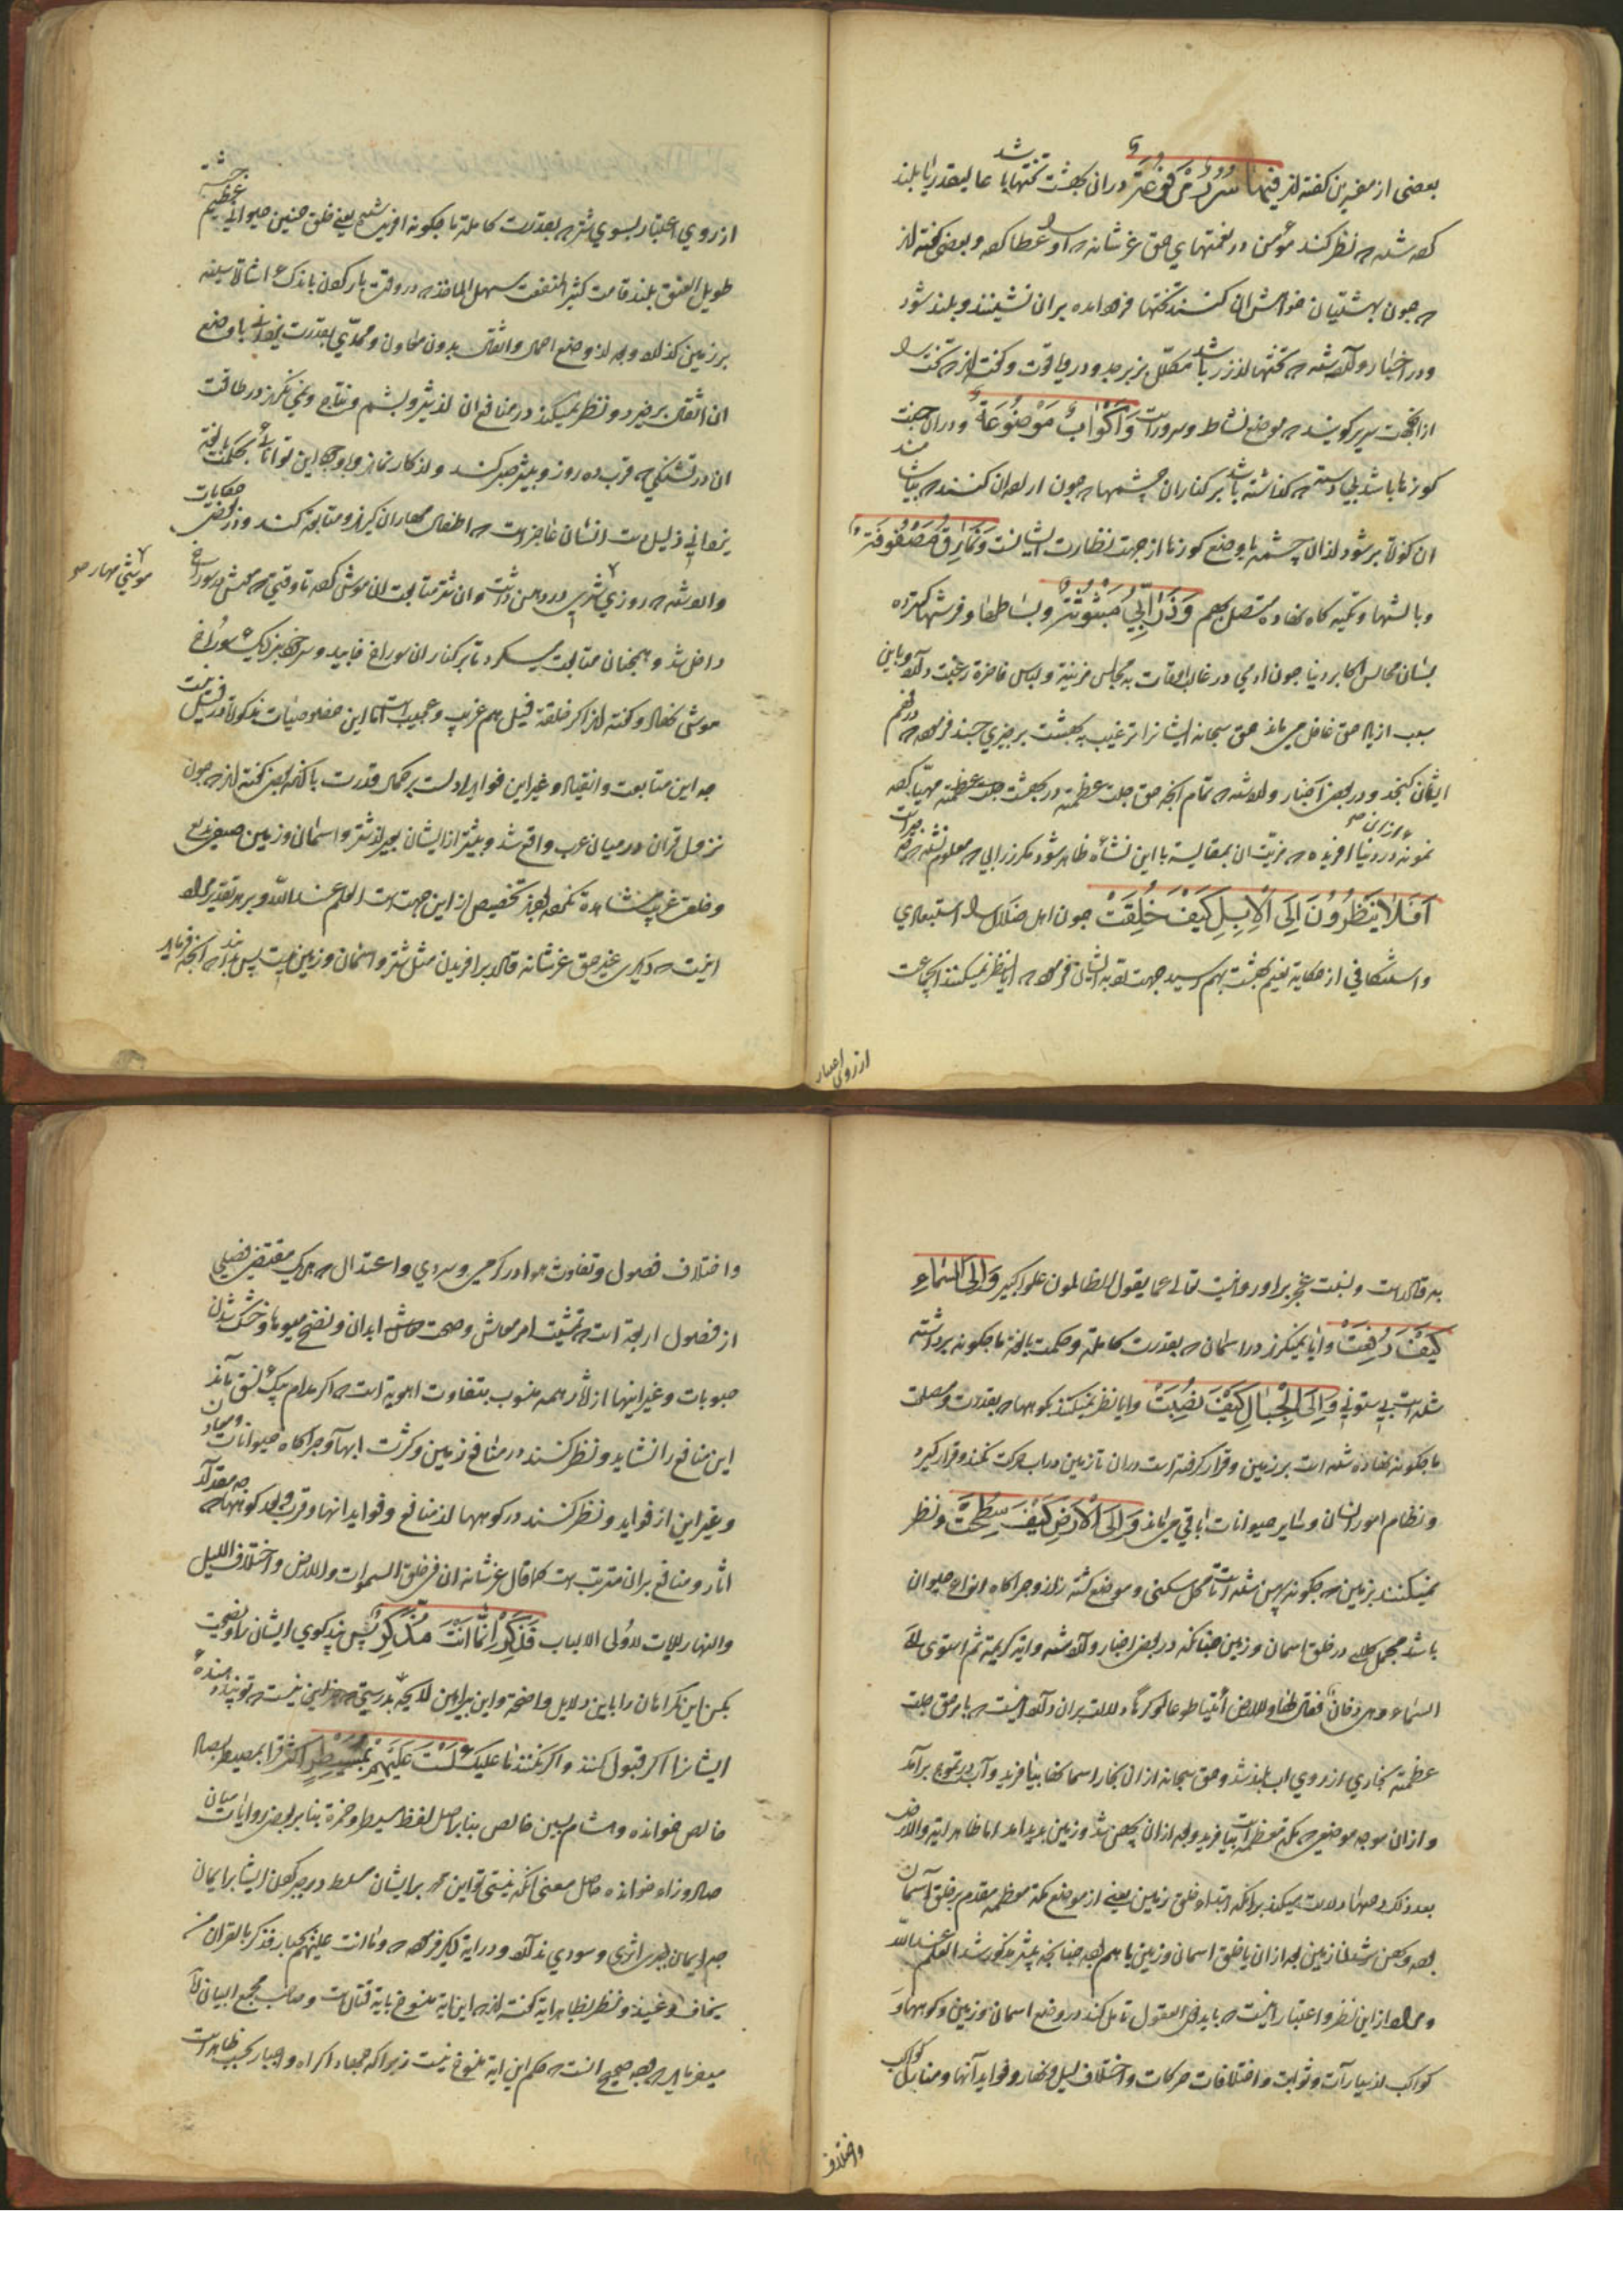 بعضی از مفسرین گفته اند فیها سُرُرٌ مَرْفُوعَةٌ دران بهشت تختهای عالیقدر یا بلند
که شده نظر کند مؤمن در نعمتهای حق عز شانه عطا کرده و بعضی گفته اند
چون بهشتیان خواهش ان کنند تختها فرود امده بران نشینند و بلند شود
و در اخبار وارد شده تختها از زر باشد مکلل بزبرجد و در و یاقوت و تخت
ازانجهت سریر گویند موضع نشاط و سرور است وَاَکْوابٌ مَوْضُوعَةٌ و دران جنت
کوزها باشد بی دسته گذاشته باشد بر کناران چشمها چون اراده ان کنند
ان کوزه پر شود ازان چشمه یا وضع کوزها از جهت نظارت ایشانست وَنَمارِقُ مَصْفُوفَةٌ
و بالشها و تکیه گاه نهاده متصل بهم وَزَرابِیُّ مَبْثُوثَةٌ و بساطها و فرشها گسترده
بسان مجالس اکابر دنیا چون ادمی در غالب اوقات به مجالس مزینه و لباس فاخره رغبت دارد و باین
سبب از یاد حق غافل می ماند حق سبحانه ایشانرا ترغیب به بهشت بر چیزی چند فرموده در فهم
ایشان گنجد و در بعض اخبار وارد شده تمام انچه حق جلت عظمته در بهشت مهیا کرده
نمونه در دنیا افریده مزیت ان بمقایسه با این نشأه ظاهر شود مگر زرابی معلوم نشده
اَفَلا یَنْظُرُونَ اِلَی الْاِبِلِ کَیْفَ خُلِقَتْ چون اهل ضلال را استبعادی
و استنکافی از حکایة نعیم بهشت بهم رسید جهت تنبیه ایشان فرموده ایا نظر نمیکنند انجماعت
از روی اعتبار
از روی اعتبار بسوی شتر بقدرت کامله ما چگونه افریده شده یعنی خلق چنین حیوانی عظیم
طویل العنق بلند قامت کثیر المنفعت سهل الماخذ در وقت بار کردن باندک اشاره سینه
بر زمین گذارد و بعد از وضع احمال و اثقال بدون معاون و ممدی بقدرت یزدانی با وضع
ان اثقال برخیزد و نظر نمیکنند در منافع ان از شیر و پشم و نتاج و نمی نگرند در طاقت
ان در تشنگی قرب ده روز و بیشتر صبر کند و از کار نماند
یزدانی ذلیل دست انسان عاجز است اطفال مهاران گیرند و متابعت کنند و در بعض حکایات
وارد شده روزی شتر ان شتر متابعت ان موش کرده تا وقتی موش در سوراخ
موشی مهار
داخل شد و همچنان متابعت میکرد تا بر کناران سوراخ خابید و سر خود بنزدیک سوراخ
موشی نهاد و گفته اند اگر خلقة فیل هم غریب و عجیب است اما این خصوصیات مذکوره در فیل نیست
چه این متابعت و انقیاد و غیر این فواید ادل است بر کمال قدرت یا انکه بعض گفته اند چون
نزول قران در میان عرب واقع شد و بیشتر از ایشان بغیر از شتر و اسمان و زمین
و خلق غریب مشاهده نکرده بودند تخصیص از این جهت است العلم عند الله و بر هر تقدیر مراد
اینست دیگری غیر حق عز شانه قادر بر افریدن مثل شتر و اسمان و زمین نیست پس بداند انچه فرماید
بر قادر است و نسبت عجز بر او روا نیست تعالی عما یقول الظالمون علوا کبیرا وَاِلَی السَّماءِ
کَیْفَ رُفِعَتْ و ایا نمینگرند در اسمان بقدرت کامله و حکمت بالغه ما چگونه برداشته
شده است بی ستونی وَاِلَی الْجِبالِ کَیْفَ نُصِبَتْ و ایا نظر نمیکنند بکوهها بقدرت و مصلحت
ما چگونه نهاده شده است بر زمین و قرار گرفته است دران تا زمین در اب حرکت نکند و قرار گیرد
و نظام امور انسان و سایر حیوانات باقی می ماند وَاِلَی الْاَرْضِ کَیْفَ سُطِحَتْ و نظر
نمیکنند بزمین چگونه پهن شده است تا محل سکنی و موضع کشت زار و چراگاه انواع حیوان
باشد مجمل کلام در خلق اسمان و زمین چنانکه در بعض اخبار وارد شده و ایه کریمه ثم استوی الی
السماء وهی دخان فقال لها وللارض ائتیا طوعا او کرها دلالت بران دارد اینست بامر حق جلت
عظمته بخاری از روی اب بلند شد و حق سبحانه ازان بخار اسمانها بیافرید و آب در تموج برآمد
و ازان موجه موضع مکه معظمه بیافرید و بعد ازان پهن شد و زمین پدید امد اما ظاهر ایه والارض
بعد ذلک دحیها دلالت میکند برانکه ابتداء خلق زمین یعنی از موضع مکه معظمه مقدم بر خلق آسمان
بوده و پهن شدن زمین بعد ازان یا خلق اسمان و زمین با هم بوده چنانچه پیشتر مذکور شد العلم عند الله
و مراد از این نظر و اعتبار اینست باید ذوی العقول تامل کنند در وضع اسمان و زمین و کوهها و
کواکب از سیارات و ثوابت و اختلافات حرکات و اختلاف لیل و نهار و فواید آنها و منازل کواکب
و اختلاف
و اختلاف فصول و تفاوت هوا در گرمی و سردی و اعتدال هر یک مقتضی فصلی
از فصول اربعه است تمشیت امر معاش و صحت ابدان و نضج میوها و خشک شدن
حبوبات و غیر اینها از اثار همه منسوب بتفاوت اهویه است اگر مدام بیک نسق ماند
این منافع را نشاید و نظر کنند در منافع زمین و کثرت ابها و چراگاه حیوانات و معادن
و غیر این از فواید و نظر کنند در کوهها از منافع و فواید انها و قرب و بعد کوهها چه مقدار
اثار و منافع بران مترتب است کما قال عز شانه ان فی خلق السموات والارض واختلاف اللیل
والنهار لایات لاولی الالباب فَذَکِّرْ اِنَّما اَنْتَ مُذَکِّرٌ پس پند گوی ایشان را و نصیحت
بکن این گمراهان را باین دلایل واضحه و این براهین لایحه بدرستی جز این نیست تو پند دهنده
ایشانرا اگر قبول کنند و اگر نکنند ما علیک لَسْتَ عَلَیْهِمْ بِمُسَیْطِرٍ اکثر قرا بمصیطر بصاد
خالص خوانده و هشام بسین خالص بنا بر اصل لفظ سیطر و حمزه بنا بر بعض روایات میان
صاد و زاء خوانده حاصل معنی انکه نیستی تو این محمد بر ایشان مسلط در جبر کردن ایشان بر ایمان
چه ایمان جبری اثری و سودی ندارد و در ایه دیگر فرموده وما انت علیهم بجبار فذکر بالقران من
یخاف وعید و نظر بظاهر ایه گفته اند این ایه منسوخ بایه قتال است و صاحب مجمع البیان
میفرماید صحیح انست حکم این ایه منسوخ نیست زیرا که جهاد اکراه و اجبار بحسب ظاهر است